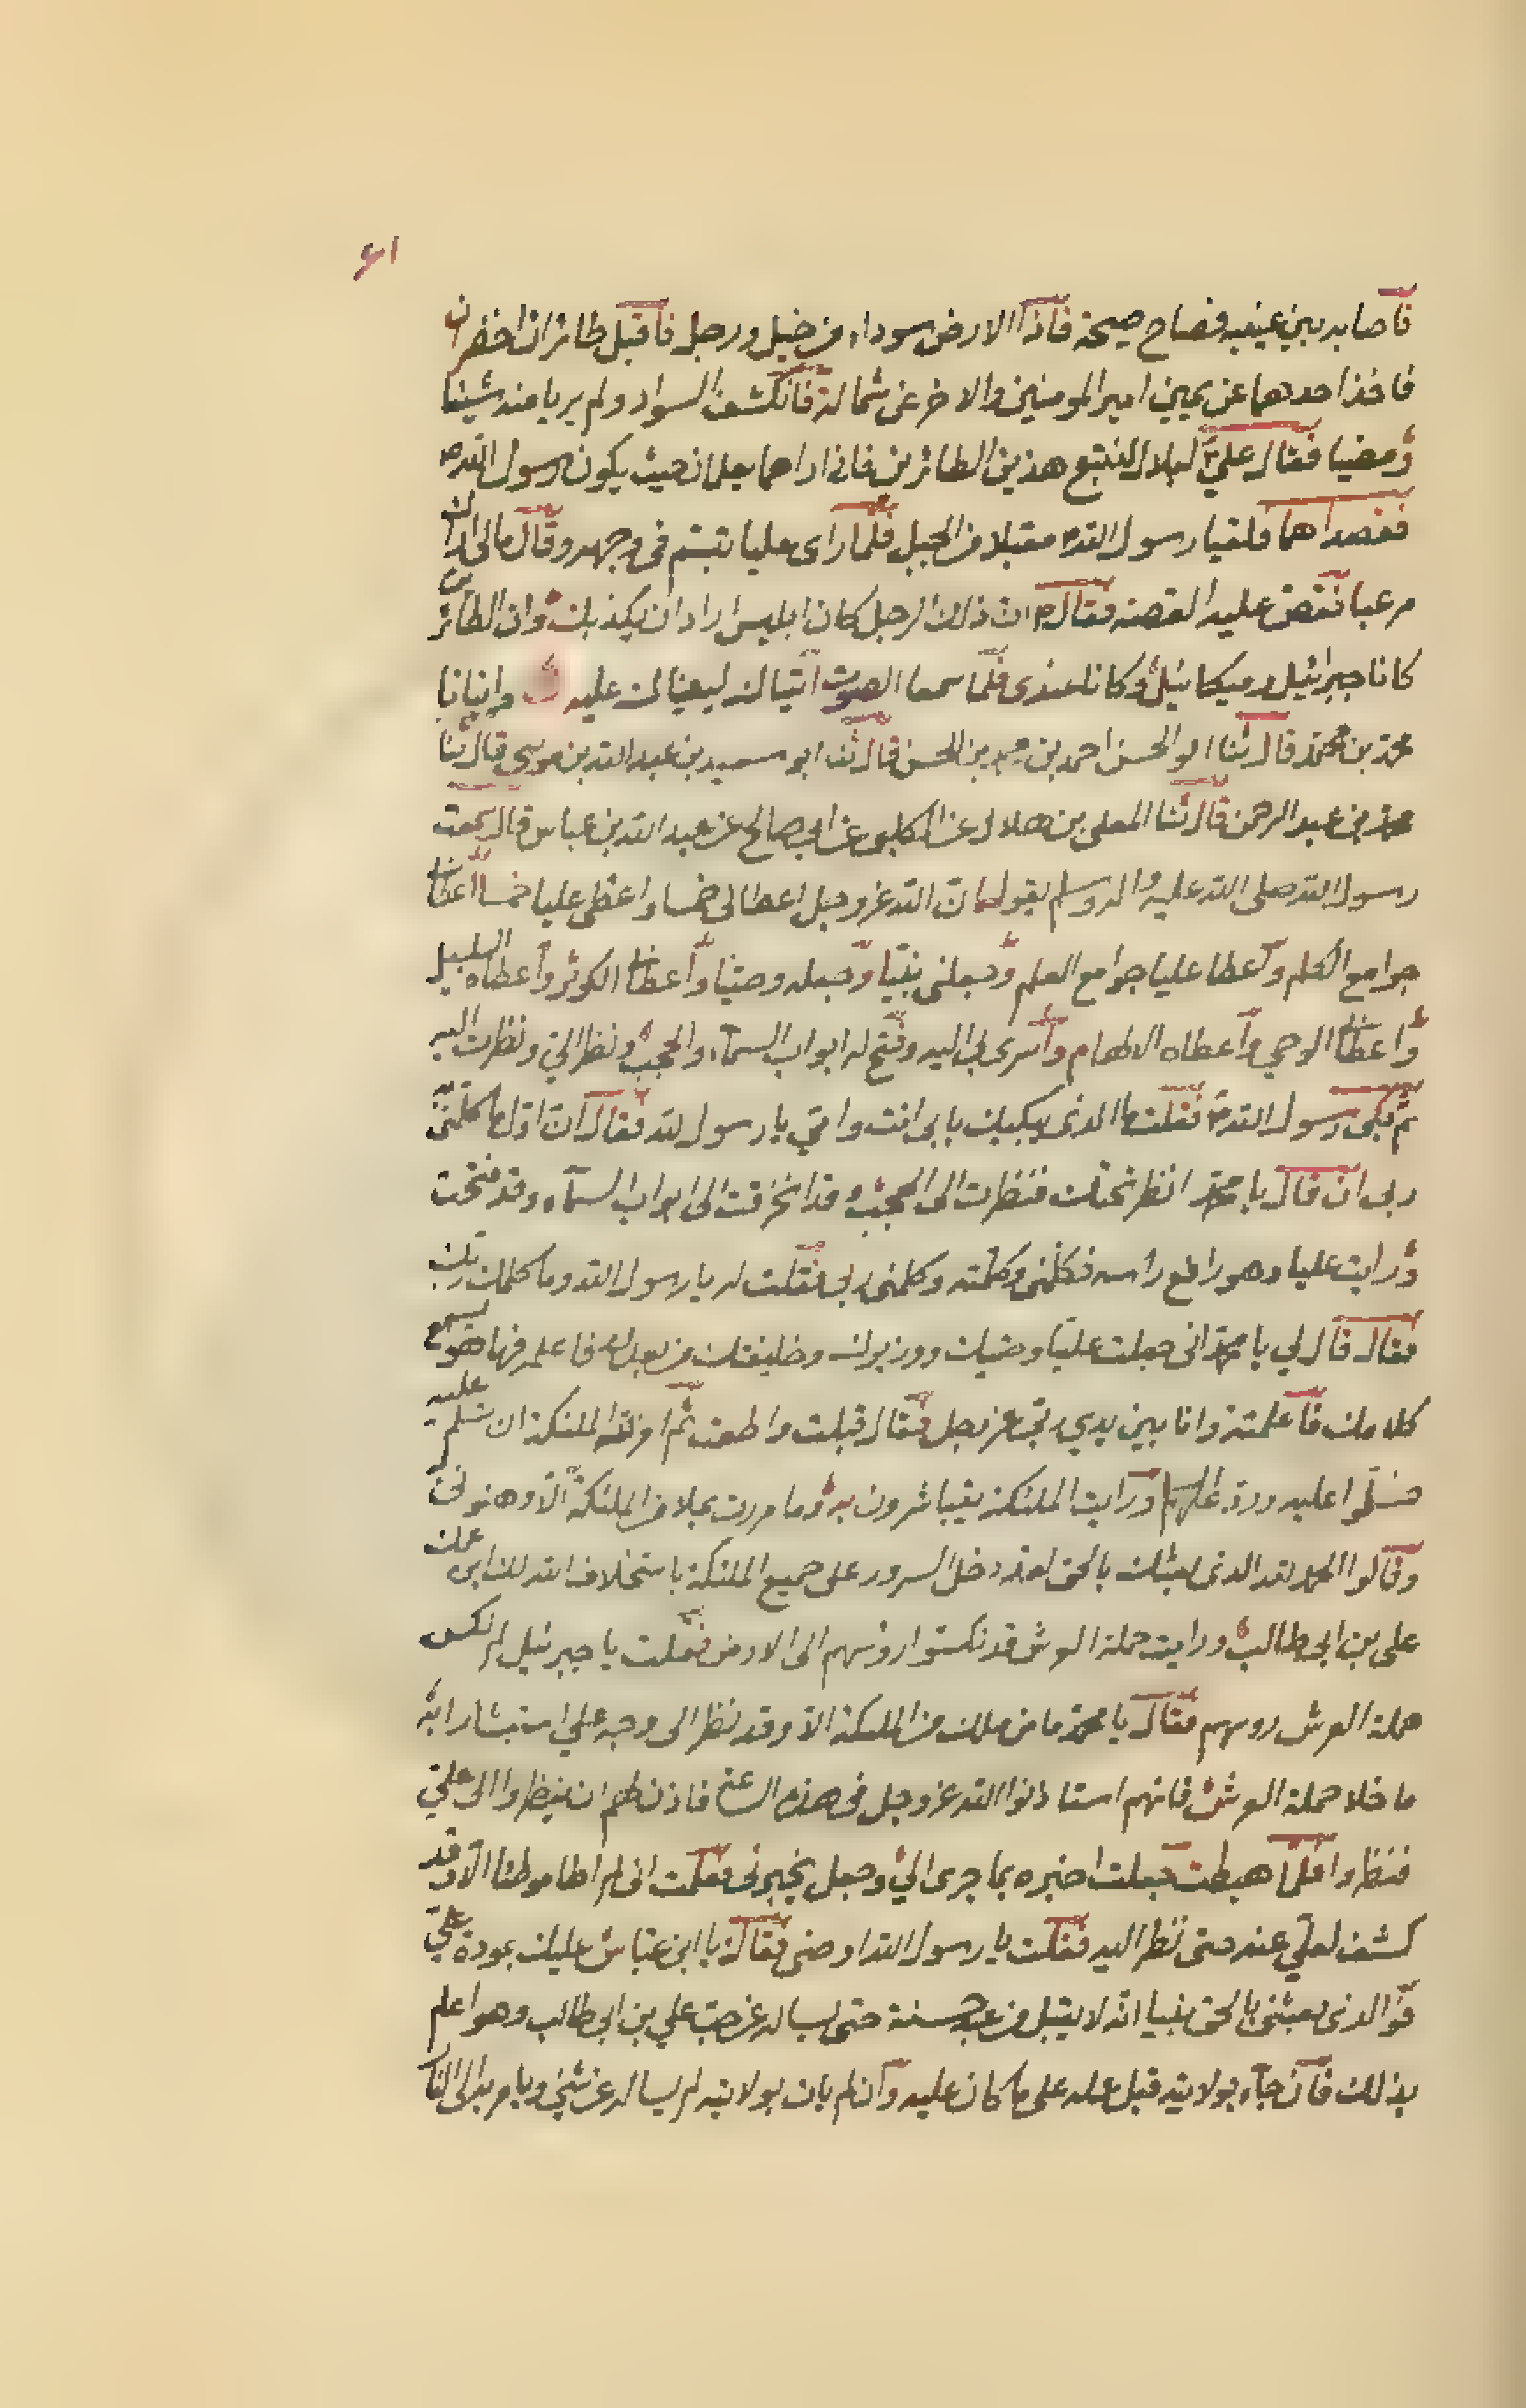 ٦١
فاصابه بين عينيه فصاح صيحة فاذا الارض سوداء من خيل ورجل فاقبل طائران اخضران
فاخذ احدهما عن يمين امير المومنين والاخر عن شماله فانكشف السواد ولم يريا منه شيئا
ومضيا فقال علي لبلال لنتبع هذين الطائرين فاني اراهما يعلمان حيث يكون رسول الله ص
فقصداهما فلقيا رسول الله ص مقبلا من الجبل فلما راى عليا تبسم في وجهه وقال مالى اراك
مرعبا فقص عليه القصة فقال ان ذلك الرجل كان ابليس اراد ان يكيد بك وان الطائرين
كانا جبرائيل وميكائيل وكانا عندى فلما سمعا الصوت اتياك ليعيناك عليه وانبانا
محمد بن محمد قال ثنا ابو الحسن احمد بن محمد بن الحسن قال ثنا ابو سعيد بن عبد الله بن موسى قال ثنا
محمد بن عبد الرحمن قال ثنا المعلى بن هلال عن الكلبى عن ابى صالح عن عبد الله بن عباس قال سمعت
رسول الله صلى الله عليه واله وسلم يقول ان الله عز وجل اعطانى خمسا واعطى عليا خمسا اعطانى
جوامع الكلم واعطا عليا جوامع العلم وجعلنى نبيا وجعله وصيا واعطانى الكوثر واعطاه السلسبيل
واعطانى الوحي واعطاه الالهام واسرى بي اليه وفتح له ابواب السمآء والحجب ونظر الي ونظرت اليه
ثم بكى رسول الله فقلت ما الذى يبكيك بابى انت وامي يا رسول الله فقال ان اول ما كلمنى
ربى ان قال يا محمد انظر تحتك فنظرت الى الحجب قد انخرقت الى ابواب السمآء وقد فتحت
ورايت عليا وهو رافع راسه فكلمنى وكلمته وكلمنى ربى فقلت له يا رسول الله وما كلمك ربك
فقال قال لي يا محمد انى جعلت عليا وصيك ووزيرك وخليفتك من بعدك فاعلمه فها هو يسمع
كلامك فاعلمته وانا بين يدي ربى عز وجل فقال قبلت واطعت ثم امر الله الملئكة ان تسلم عليه
فسلموا عليه ورد عليهم ورايت الملئكة يتباشرون به وما مررت بملا من الملئكة الا وهنونى
وقالوا يا محمد والذى بعثك بالحق لقد دخل السرور على جميع الملئكة باستخلاف الله لك ابن عمك
على بن ابى طالب ورايت حملة العرش قد نكسوا رؤسهم الى الارض فقلت يا جبرئيل لم نكس
حملة العرش روسهم فقال يا محمد ما من ملك من الملئكة الا وقد نظر الى وجه علي استبشارا به
ما خلا حملة العرش فانهم استاذنوا الله عز وجل فى هذه الساعة فاذن لهم ان ينظروا الى علي
فنظروا فلما هبطت جعلت اخبره بما جرى الي وجعل يخبرنى فعلمت انى لم اطا موطئا الا وقد
كشف لعلي عنه حتى نظر اليه فقلت يا رسول الله اوصنى فقال يا ابن عباس عليك بمودة علي
فو الذى بعثنى بالحق نبيا انه لا يقبل من عبد حسنة حتى يساله عن حب علي بن ابى طالب وهو اعلم
بذلك فان جآء بولايته قبل عمله على ما كان عليه وان لم يات بولايته لم يساله عن شئ ويامر به الى النار